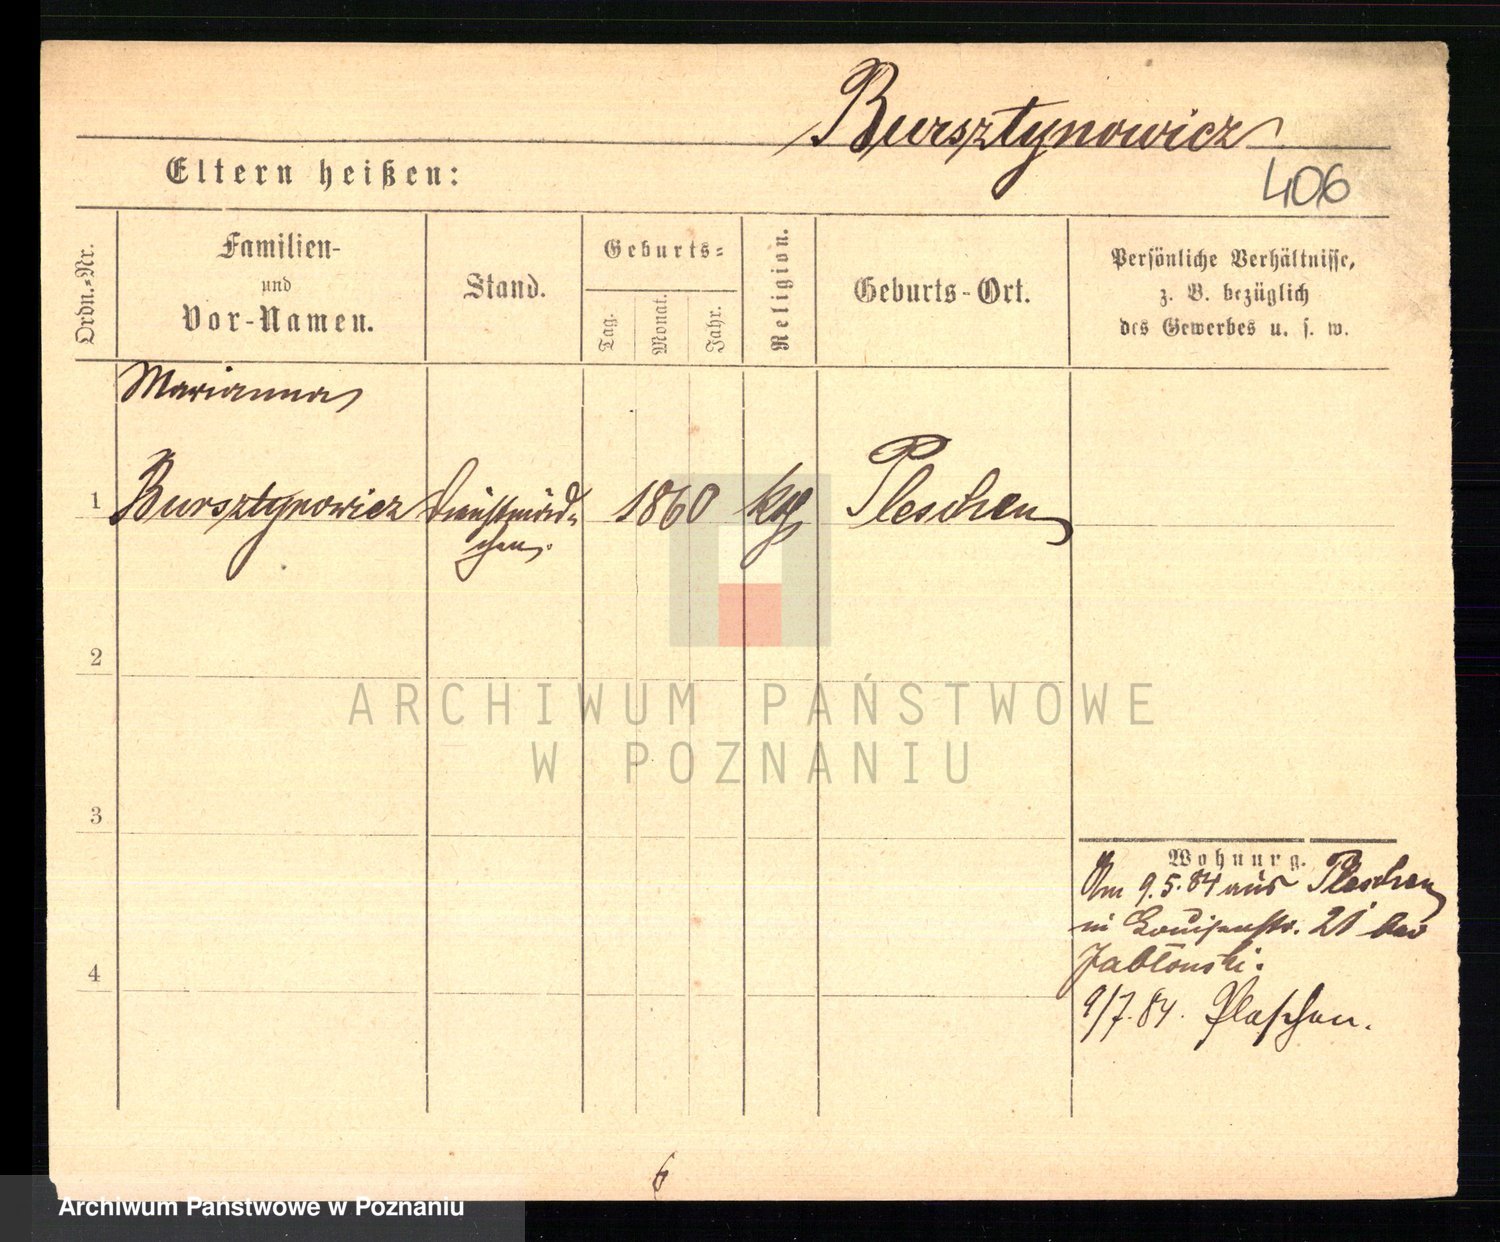 Bursztynowicz
406
Eltern heißen:
Ordn.-Nr.
Familien-
und
Vor-Namen.
Stand.
Geburts-
Tag.
Monat.
Jahr.
Religion.
Geburts-Ort.
Persönliche Verhältnisse,
z. B. bezüglich
des Gewerbes u. s. w.
Marianna
1 Bursztynowicz Dienstmäd- 1860 kg Pleschen
chen.
2
ARCHIWUM PAŃSTWOWE
W POZNANIU
3
Wohnung.
Am 9.5.84 aus Pleschen
in Louisenstr. 21 bei
Jabłonski.
4
9/7.84. Pleschen.
6
Archiwum Państwowe w Poznaniu